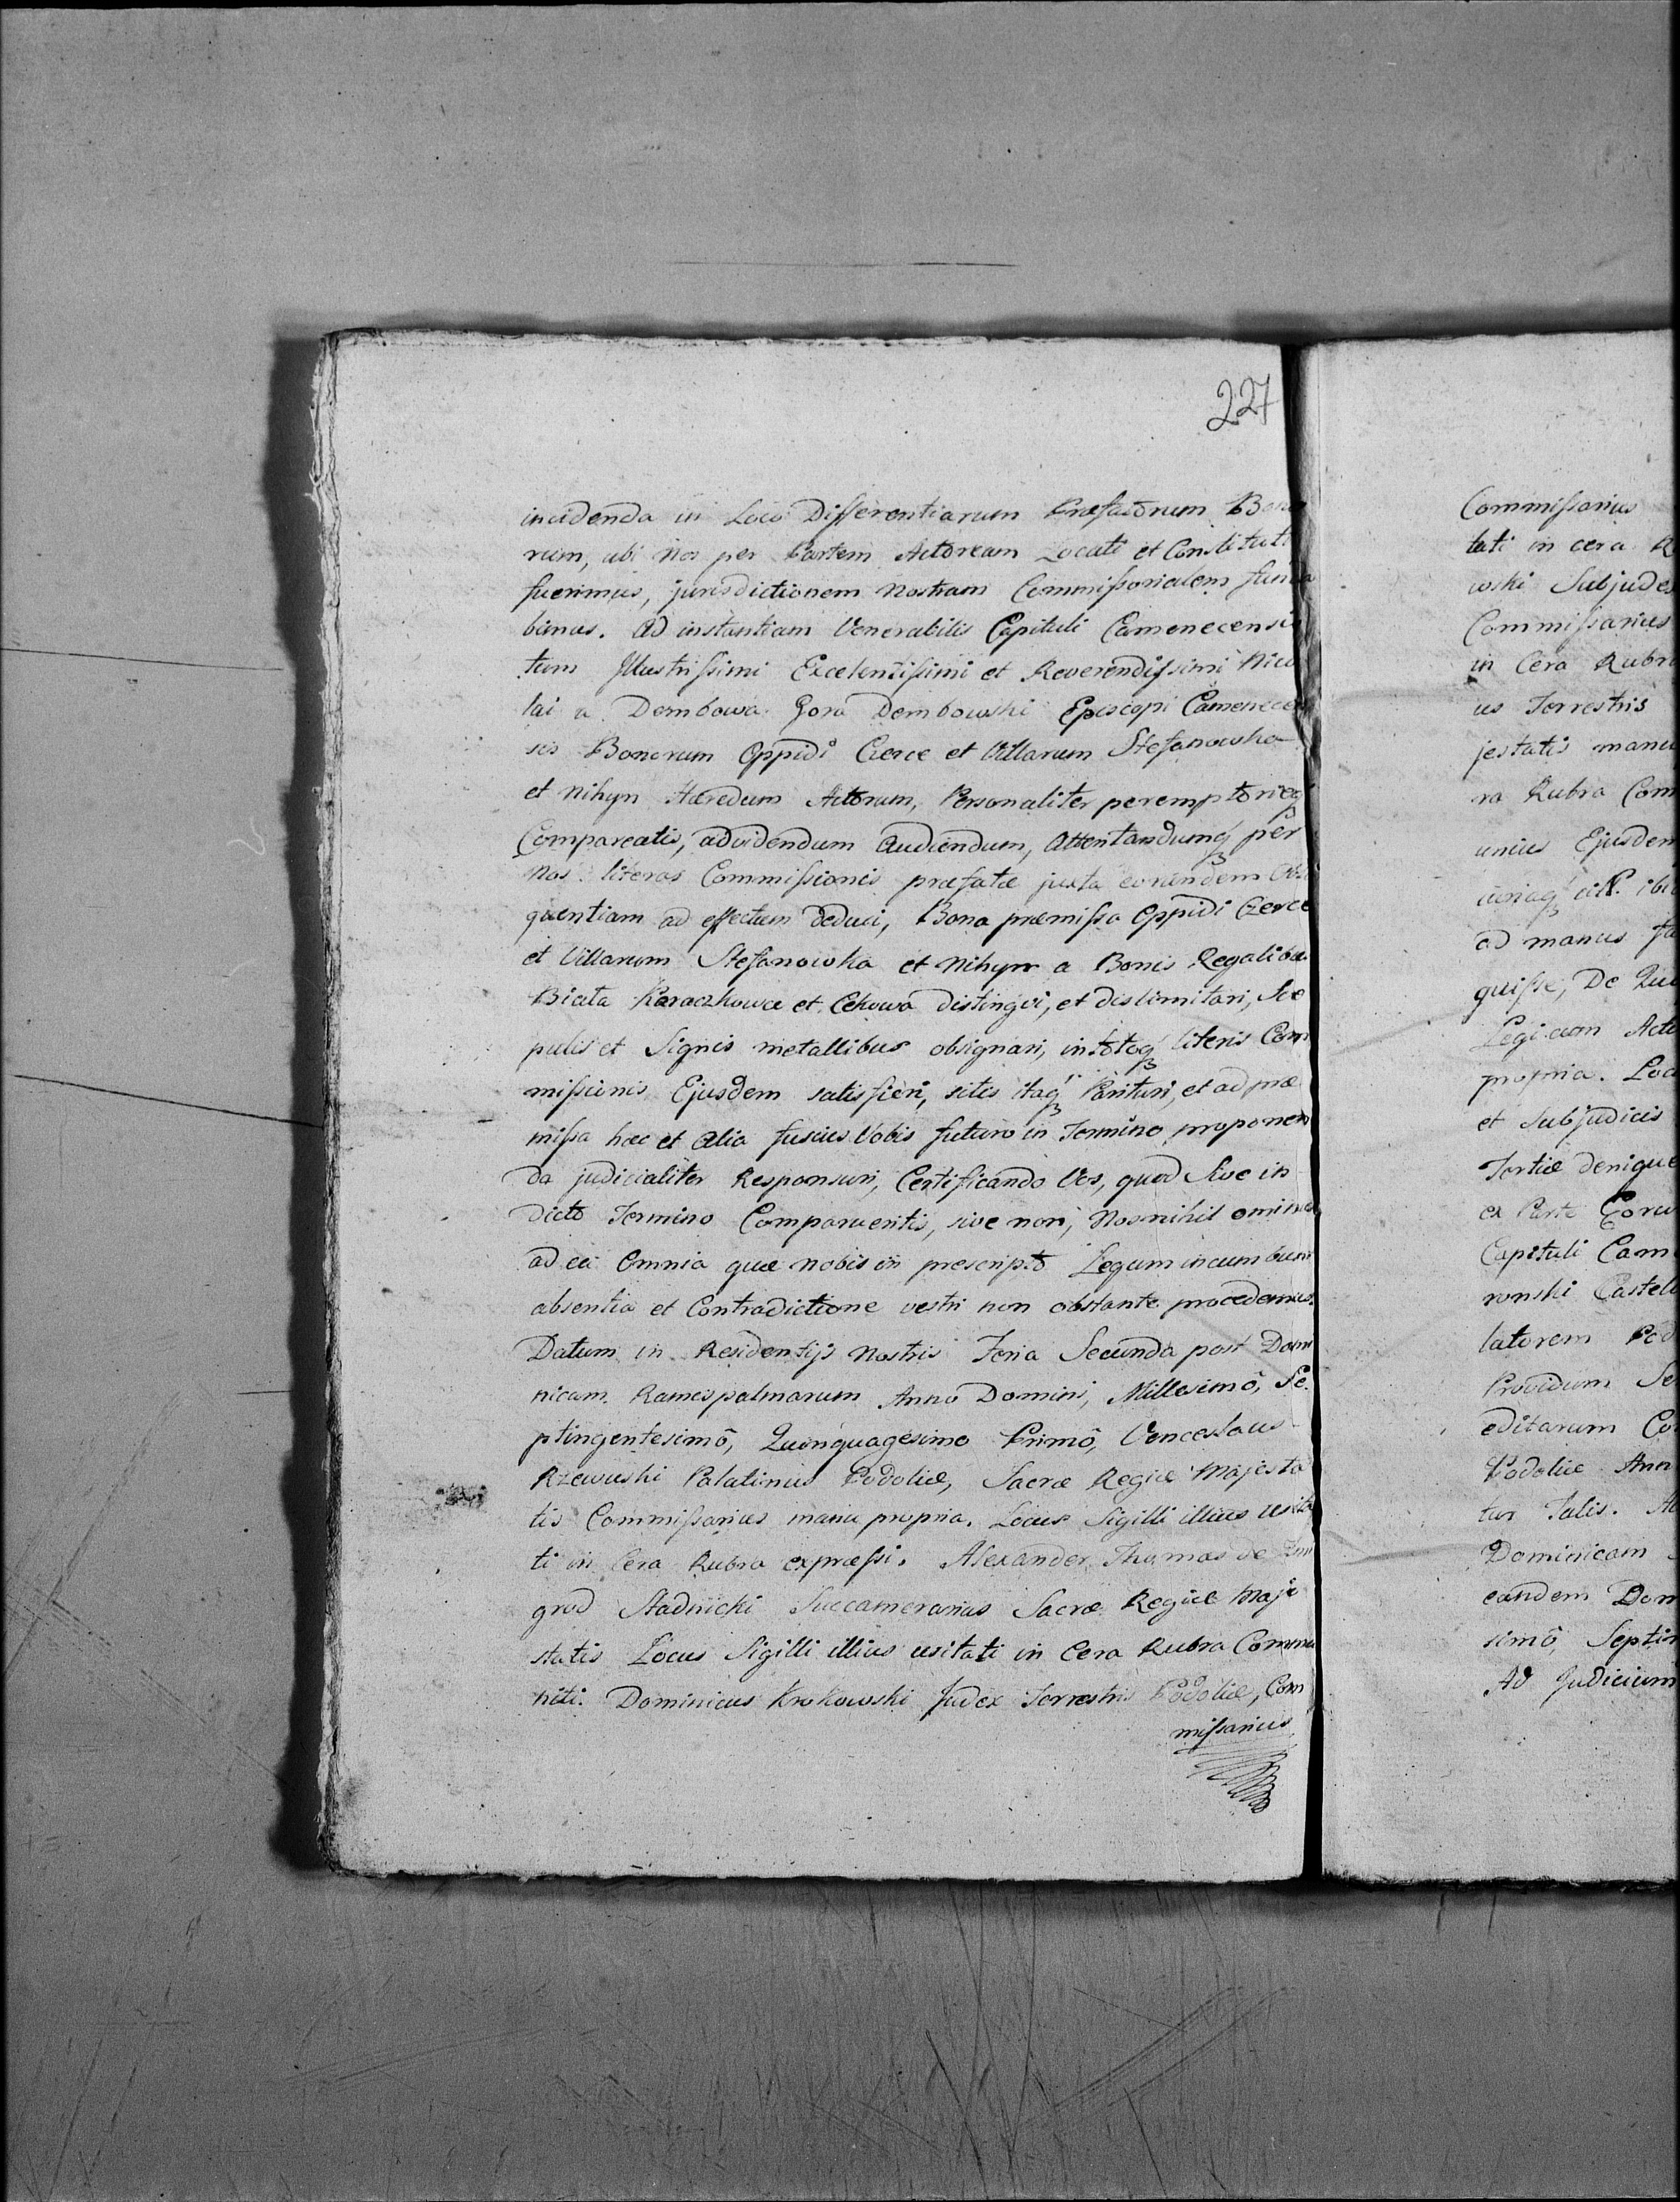 227
incidenda in Loco Differentiarum Præfatorum Bono
rum, ubi Nos per Partem Actoream Locati et Constituti
fuerimus, jurisdictionem nostram Commissorialem funda
bimus. Ad instantiam Venerabilis Capituli Camenecensis
tum Illustrissimi Excelentissimi et Reverendissimi Nico
lai a Dembowa Gora Dembowski Episcopi Camenecen
sis Bonorum Oppidi Czerce et Villarum Stefanowka
et Nihyn Hæredum Actorum, Personaliter peremptorieq
Compareatis, ad videndum Audiendum, Attentandumq per
Nos literas Commissionis præfatæ juxta eorundem
quentiam ad effectum deduci, Bona præmissa Oppidi Czerce
et Villarum Stefanowka et Nihyn a Bonis Regalibus
Biata Karaczkowce et Cekowa distingvi, et dislimitari, Sco
pulis et Signis metallibus obsignari, intotoq literis Com
missionis Ejusdem satisfieri, sitis itaq Parituri, et ad præ
missa hæc et alia fusius Vobis futuro in Termino proponen
da judicialiter Responsuri, Certificando Vos, quod Sive in
dicto Termino Comparueritis, sive non, Nos nihil ominus
ad ea Omnia quæ nobis in prescripto Legum incumbunt
absentia et Contradictione vestri non obstante procedemus.
Datum in Residentijs Nostris Feria Secunda post Domi
nicam Ramispalmarum Anno Domini, Millesimô, Se
ptingentesimô, Quinquagesimo Primô, Venceslaus
Rzewuski Palatinus Podoliæ, Sacræ Regiæ Majesta
tis Commissarius manu propria. Locus Sigilli illius usita
ti in Cera Rubra expressi. Alexander Thomas de Zmi
grod Stadnicki Succamerarius Sacræ Regiæ Maje
statis Locus Sigilli illius usitati in Cera Rubra Commu
niti. Dominicus Krokowski Judex Terrestris Podoliæ, Com
missarius
Commissarius
tati in cera R
woski Subjudex
Commissarius
in Cera Rubra
us Terrestris
jestatis manu
ra Rubra Com
unius Ejusdem
ad manus
quisse, De
Legi cum Acto
propria. Loc
et Subjudicis
Tertiæ denique
ex Parte Eoru
Capituli Cam
ronski Castel
latorem Pod
Providum Se
editarum Co
Podoliæ Ann
tur Talis.
Dominicam
eandem Dom
simô, Septin
Ad Judicium